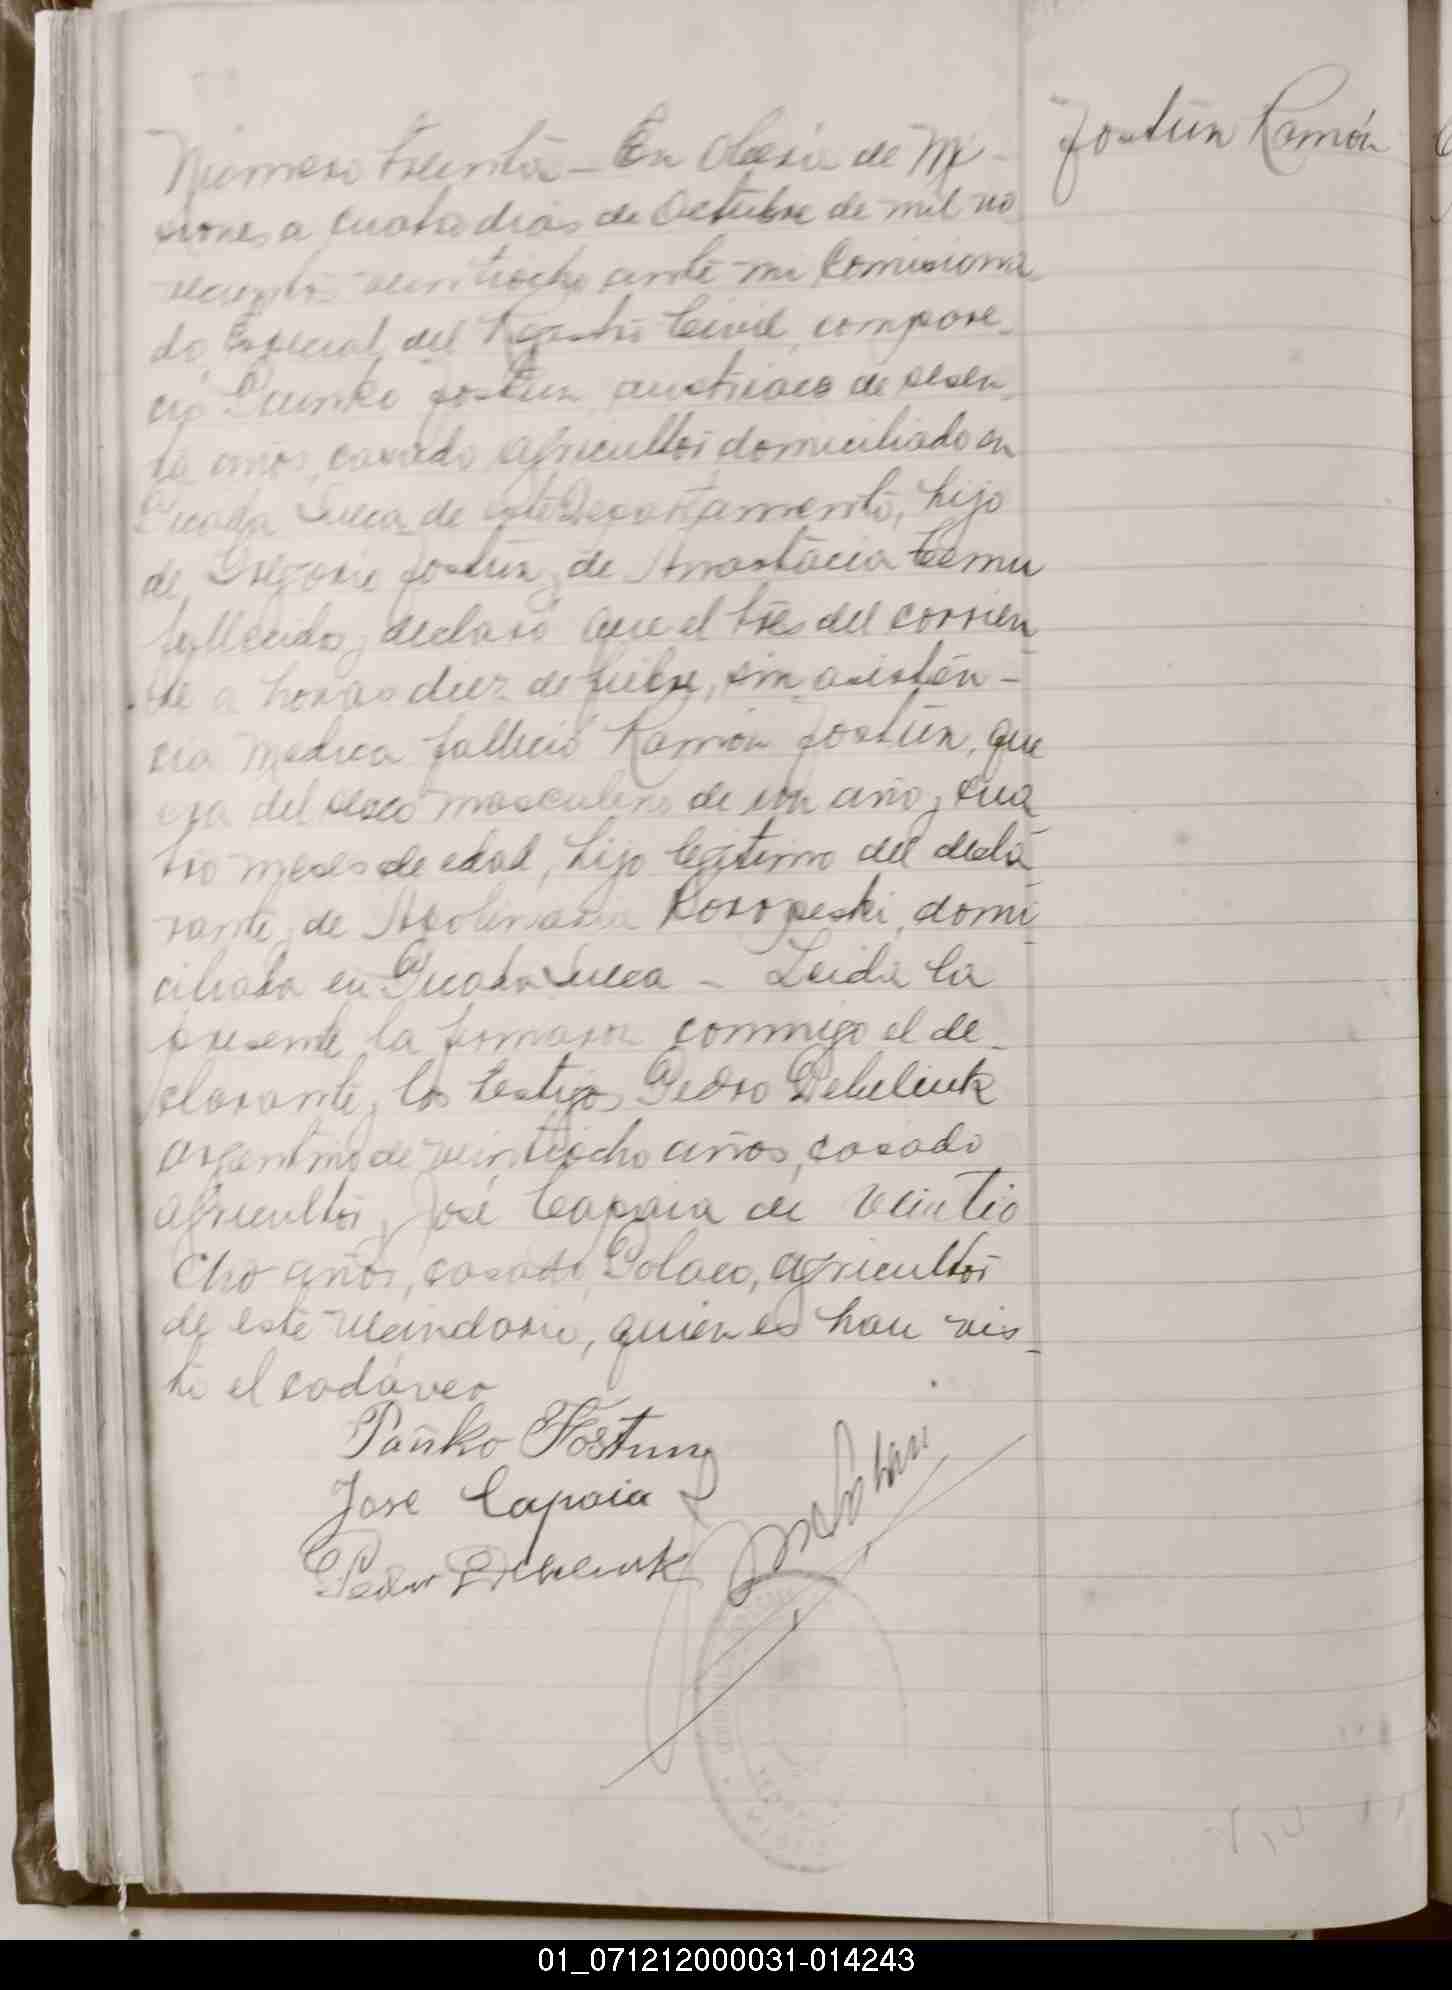 Fostún Ramón
Número treinta - En Oberá de Mi-
siones a cuatro dias de Octubre de mil no
vecientos veintiocho ante mi Comisiona
do Especial del Registro Civil, compare-
ció Panko Fostun, austriaco de sesen-
ta años, casado agricultor domiciliado en
Picada Sueca de este Departamento, hijo
de Gregorio Fostún, de Anastacia
fallecidos, declaró que el tres del corrien-
te a horas diez de fiebre, sin asistén-
cia medica falleció Ramón Fostún, que
era del sexo masculino de un año, cua
tro meses de edad, hijo legitimo del decla
rante, de Apolinaria Koropeski, domi
ciliada en Picada Sueca - Leida la
presente la firmaron conmigo el de-
clarante, los testigos Pedro
argentino de veintiocho años, casado
agricultor, José Capaia de veintio
cho años, casado, Polaco, agricultor
de este vecindario, quienes han vis-
to el cadáver
Pañko Fostun
Jose Capaia
Pedro
01_071212000031-014243